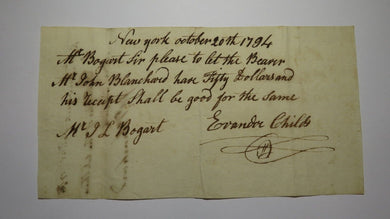 New york october 20th 1794
Mr Bogart Sir please to let the Bearer
Mr John Blanchard have Fifty Dollars and
his receipt Shall be good for the same
Mr J L Bogart Evander Childs